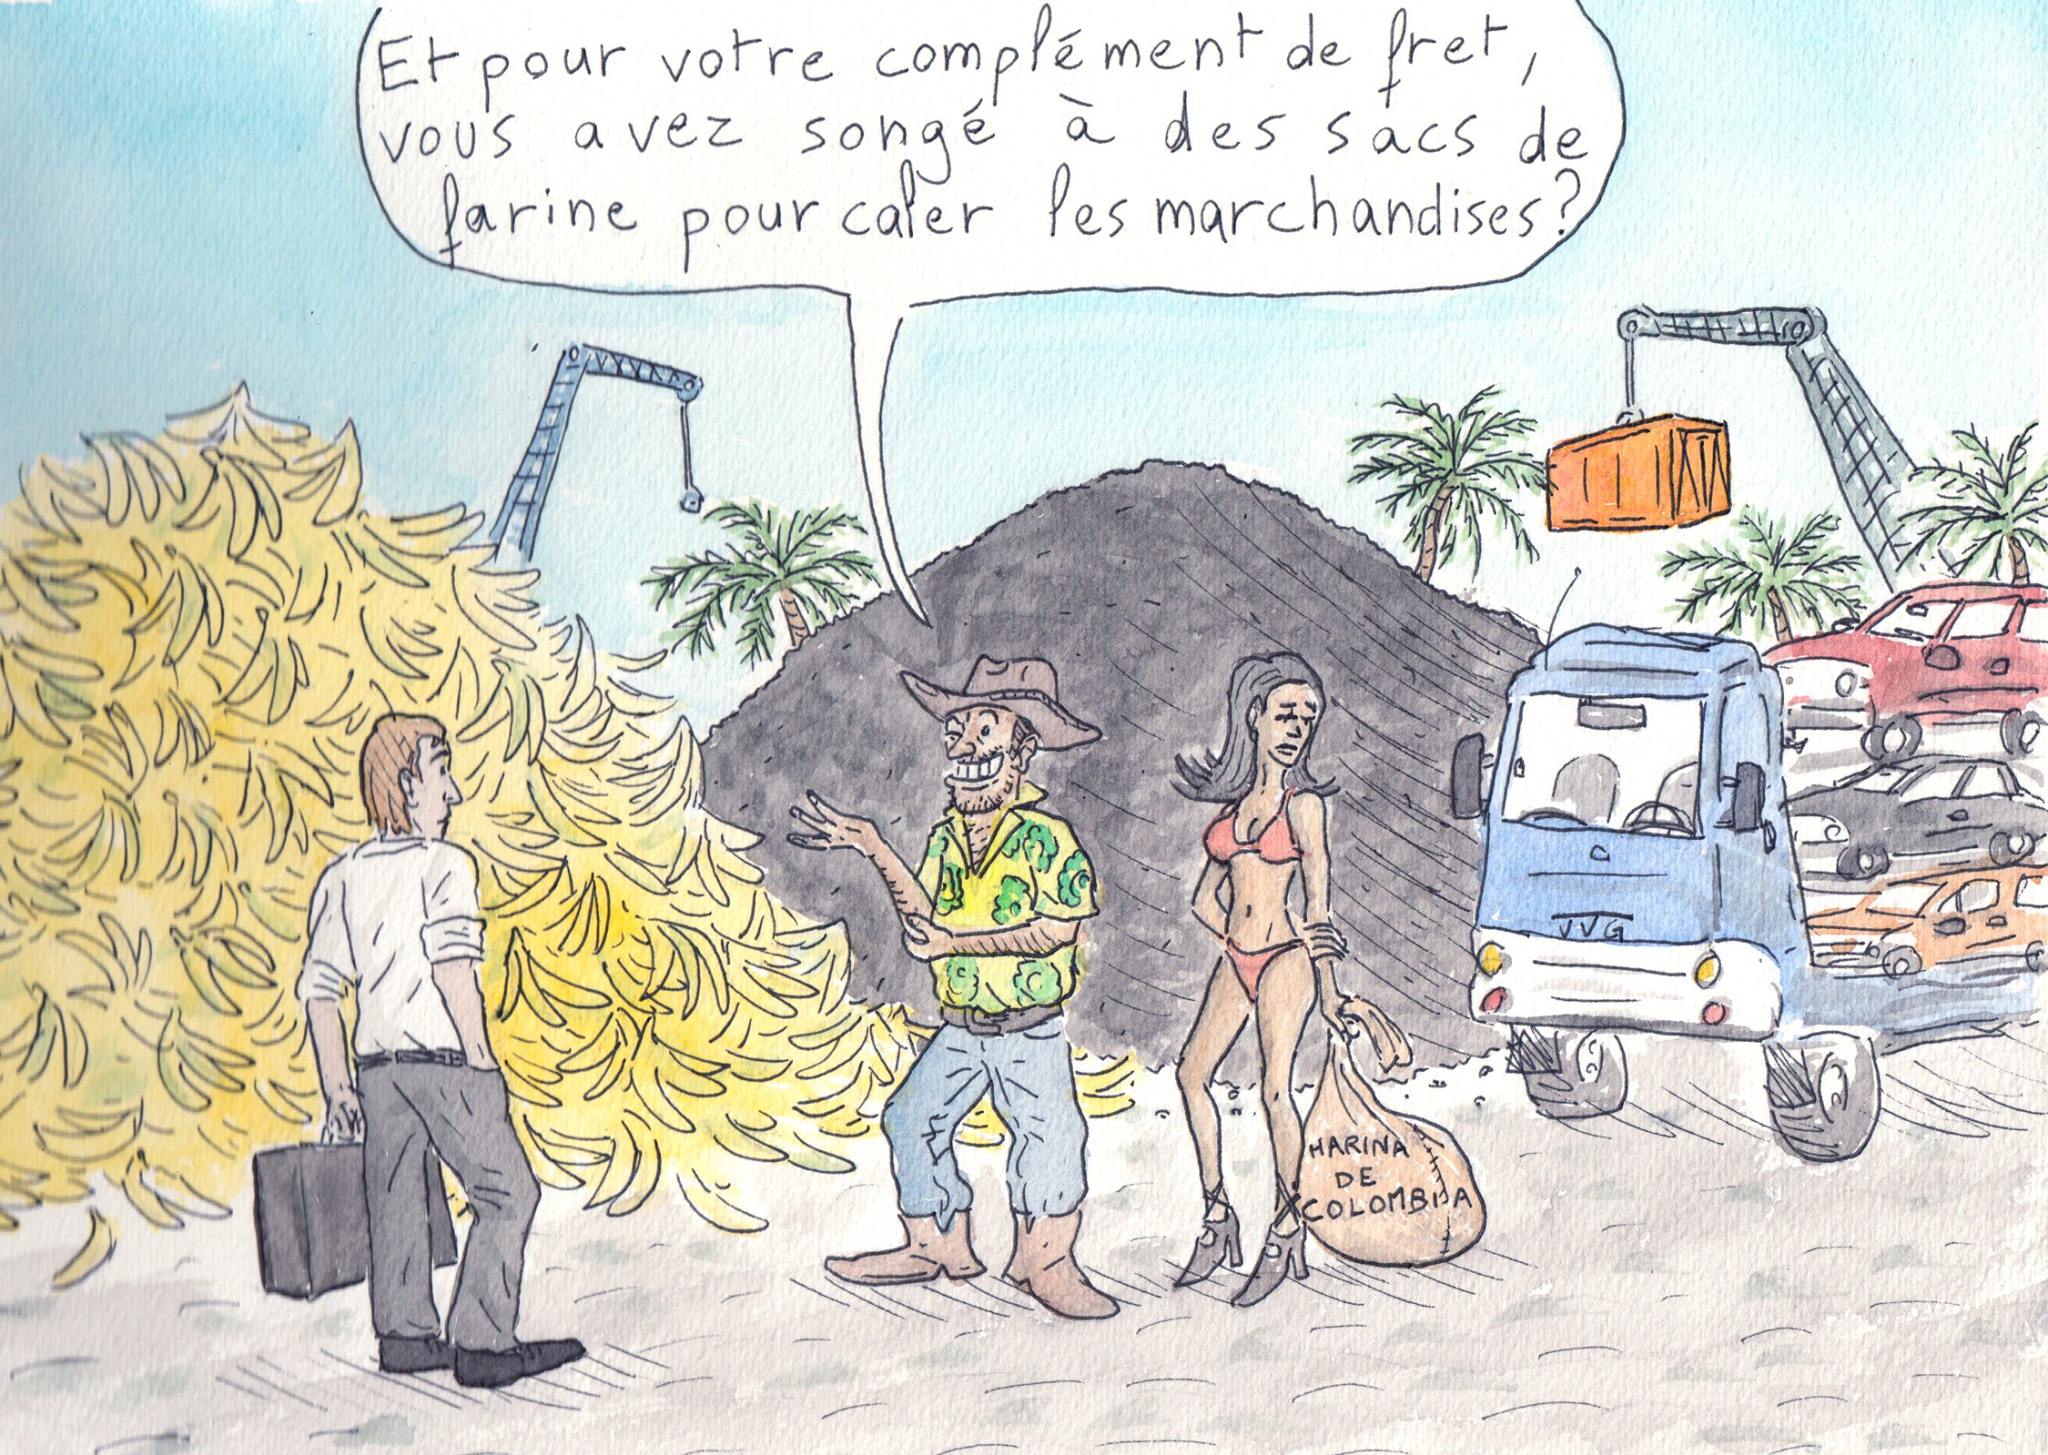 Et pour votre complément de fret,
vous avez songé à des sacs de
farine pour caler les marchandises?
VVG
HARINA
DE
COLOMBIA